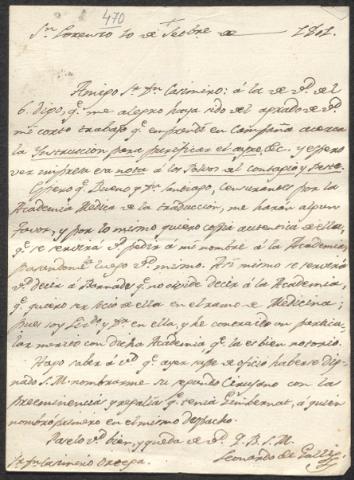 470
Sn. Lorenzo 10 de Sbre. de 1801.
Amigo Sr. Dn. Casimiro: á la de Vd. del
6. digo, q.e me alegro haya sido del agrado de Vd.
mi corto trabajo q.e emprendí en Campaña acerca
la Instruccion para purificar el ayre, &c. y espero
ver impresa esa nota á los Polvos del contagio y Peste.
Espero q.e Bueno y Dn. Santiago, Censurantes por la
Academia Medica de la traduccion, me harán algun
favor, y por lo mismo quiero copia autentica de ella,
q.e se servirá Vd. pedir á mi nombre á la Academia,
pasandome luego Vd. mismo. Asi mismo se servirá
Vd. decir á Barnades no olvide decir á la Academia,
q.e quiero ser Socio de ella en el ramo de Medicina;
pues soy Licdo. y Dr. en ella, y he contraido un particu-
lar merito con dicha Academia q.e la es bien notorio.
Hago saber á Vd. q.e ayer supe de oficio haberse dig-
nado S.M. nombrarme su segundo Cirujano con las
preeminencias y regalias q.e tenia Gimbernat, á quien
nombró primero en el mismo despacho.
Páselo Vd. bien, y queda de Vd. Q. B. S. M.
Leonardo de Galli
Sr. Dn. Casimiro Ortega.